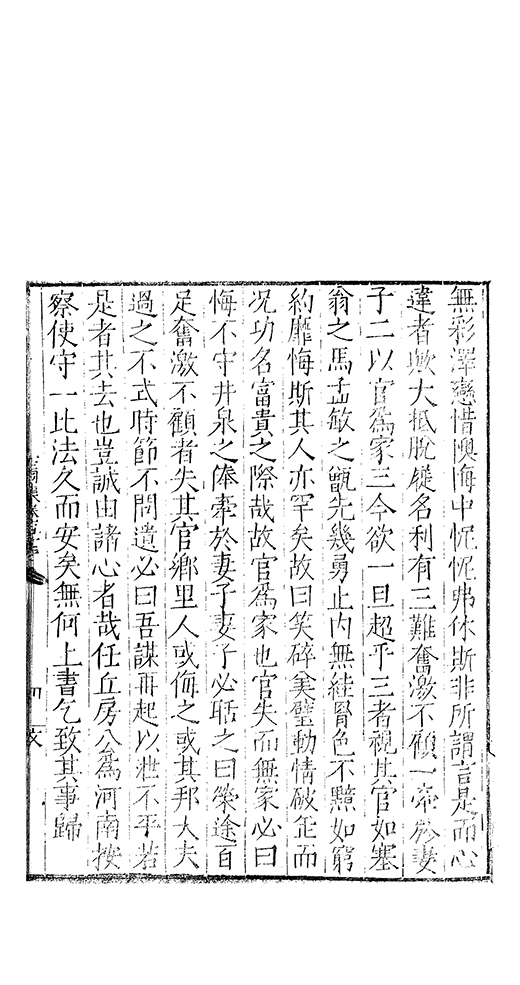 無彩澤戀惜懊悔中怩怩弗休斯非所謂言是而心
違者歟大抵脫縱名利有三難奮激不顧一牽於妻
子二以官爲家三今欲一旦超乎三者視其官如塞
翁之馬孟敏之甑先幾勇止内無絓胷色不黯如窮
約靡悔斯其人亦罕矣故曰笑碎美璧動情破缶而
况功名富貴之際哉故官爲家也官失而無家必曰
悔不守井泉之俸牽於妻子妻子必聒之曰榮途百
足奮激不顧者失其官鄉里人或侮之或其邦大夫
過之不式時節不問遺必曰吾謀再起以泄不平若
是者其去也豈誠由諸心者哉任丘房公爲河南按
察使守一比法久而安矣無何上書乞致其事歸
四
文